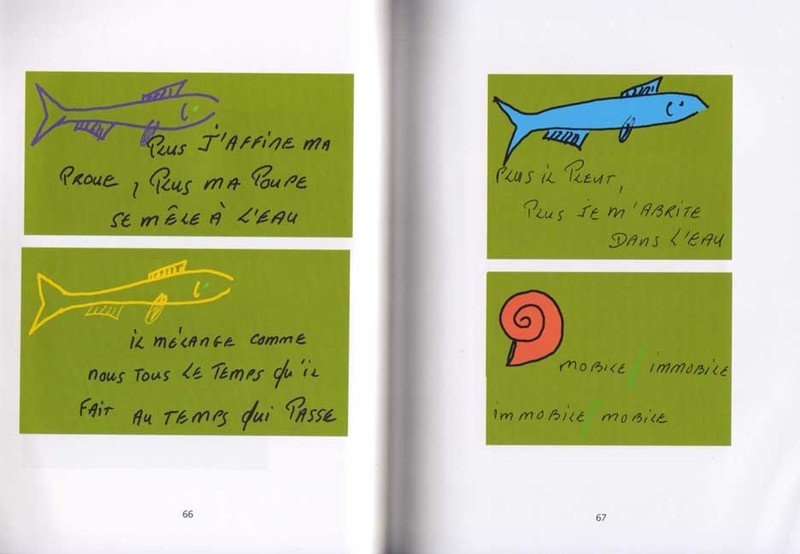 PLUS J'AFFINE MA
PROUE, PLUS MA POUPE
SE MÊLE À L'EAU
IL MÉLANGE COMME
NOUS TOUS LE TEMPS QU'IL
FAIT AU TEMPS QUI PASSE
66
PLUS IL PLEUT,
PLUS JE M'ABRITE
DANS L'EAU
MOBILE / IMMOBILE
IMMOBILE / MOBILE
67